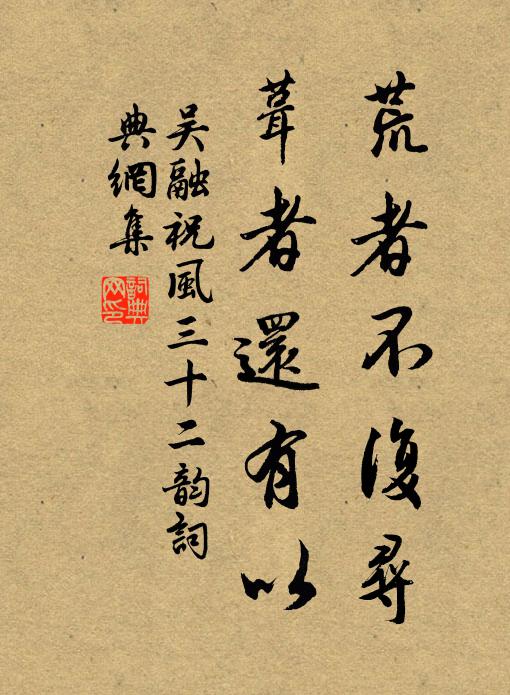 荒者不復尋
葺者還有以
吴融祝風三十二韵詞
典網集
詞典
网印